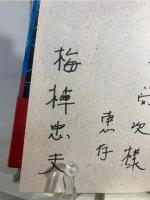 栄次様
恵存
梅棹忠夫